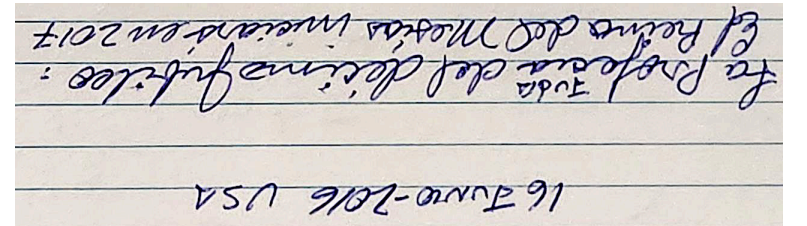 16 Junio-2016 USA
La Profecia del décimo Jubileo:
JUDA
El Reino del Mesías iniciará en 2017